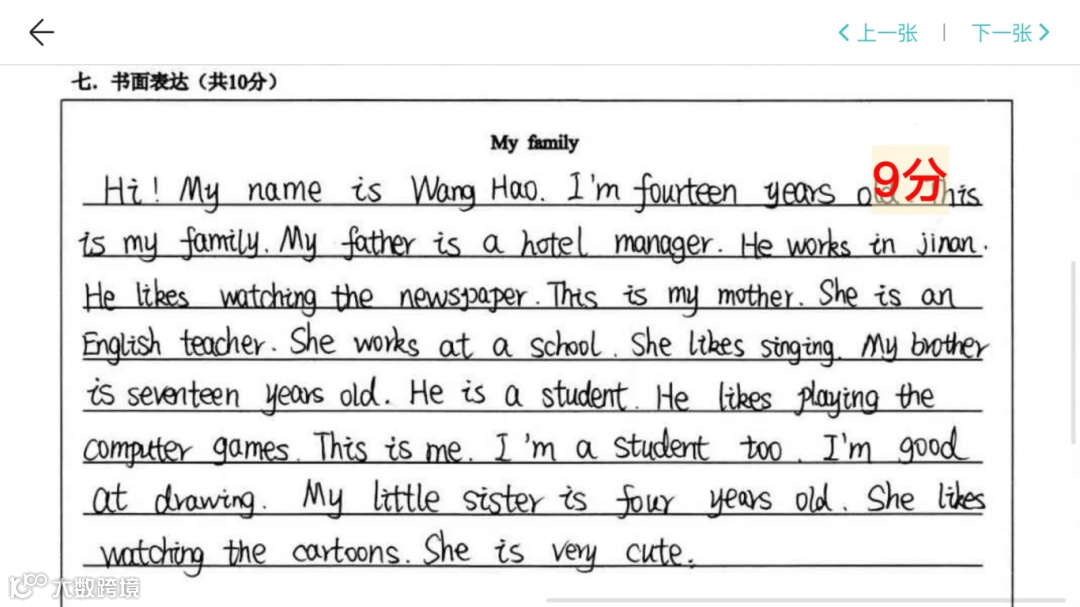 上一张 | 下一张
七. 书面表达（共10分）
My family
9分
Hi! My name is Wang Hao. I'm fourteen years old This
is my family. My father is a hotel manager. He works in jinan.
He likes watching the newspaper. This is my mother. She is an
English teacher. She works at a school. She likes singing. My brother
is seventeen years old. He is a student. He likes playing the
computer games. This is me. I'm a student too. I'm good
at drawing. My little sister is four years old. She likes
watching the cartoons. She is very cute.
大数跨境